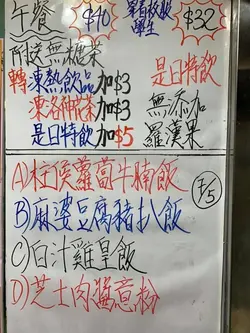 午餐 $40 穿著校服學生 $32
附送無糖茶
轉凍熱飲品加$3 是日特飲
凍洛神花茶加$3 無添加
是日特飲加$5 羅漢果
A)柱侯蘿蔔牛腩飯
B)麻婆豆腐豬扒飯
C)白汁雞皇飯
D)芝士肉醬意粉
7/5